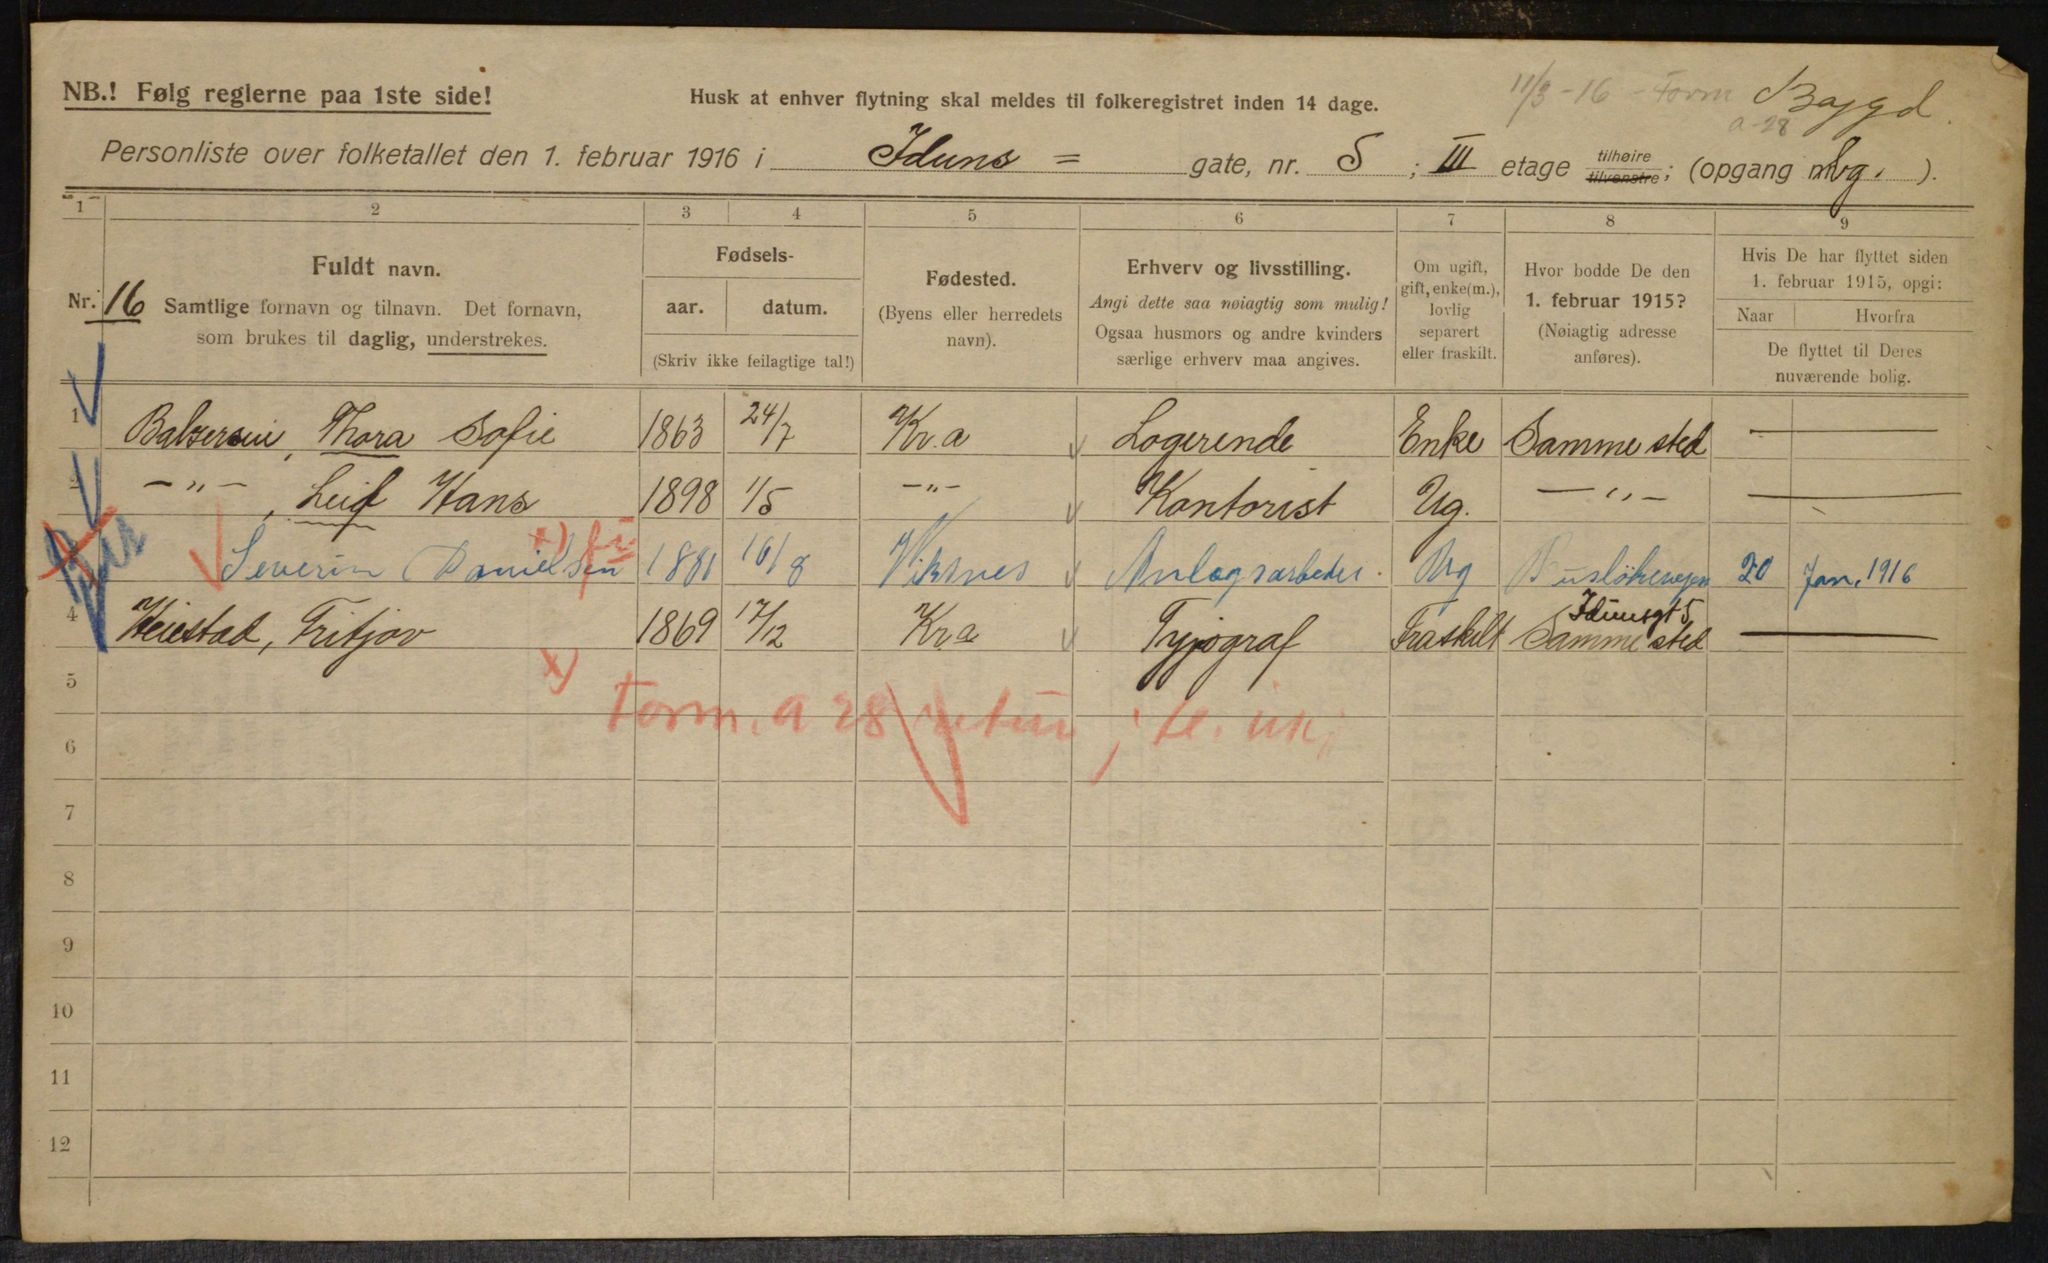 11/3-16 - Form Baggd.
a-28
NB.! Følg reglerne paa 1ste side!
Husk at enhver flytning skal meldes til folkeregistret inden 14 dage.
Personliste over folketallet den 1. februar 1916 i Iduns = gate, nr. 5 ; III etage tilhøire tilvenstre; (opgang ).
1 2 3 4 5 6 7 8 9
Nr. 16
Fuldt navn.
Samtlige fornavn og tilnavn. Det fornavn,
som brukes til daglig, understrekes.
Fødsels-
aar. datum.
(Skriv ikke feilagtige tal!)
Fødested.
(Byens eller herredets
navn).
Erhverv og livsstilling.
Angi dette saa nøiagtig som mulig!
Ogsaa husmors og andre kvinders
særlige erhverv maa angives.
Om ugift,
gift, enke(m.),
lovlig
separert
eller fraskilt.
Hvor bodde De den
1. februar 1915?
(Nøiagtig adresse
anføres).
Hvis De har flyttet siden
1. februar 1915, opgi:
Naar Hvorfra
De flyttet til Deres
nuværende bolig.
1 Balsersen, Thora Sofie 1863 24/7 Kr.a Logerende Enke Samme sted —
2 —"— , Leif Hans 1898 1/5 —"— Kontorist Ug. —"— —
Severin Danielsen 1881 16/8 Viksnes Anlægsarbeder. Ug 20 Jan, 1916
Idunsgt 5
4 Heiestad, Fritjov 1869 17/12 Kr.a Typograf Fraskilt Samme sted —
5 x) Form. a 28 retur
6
7
8
9
10
11
12